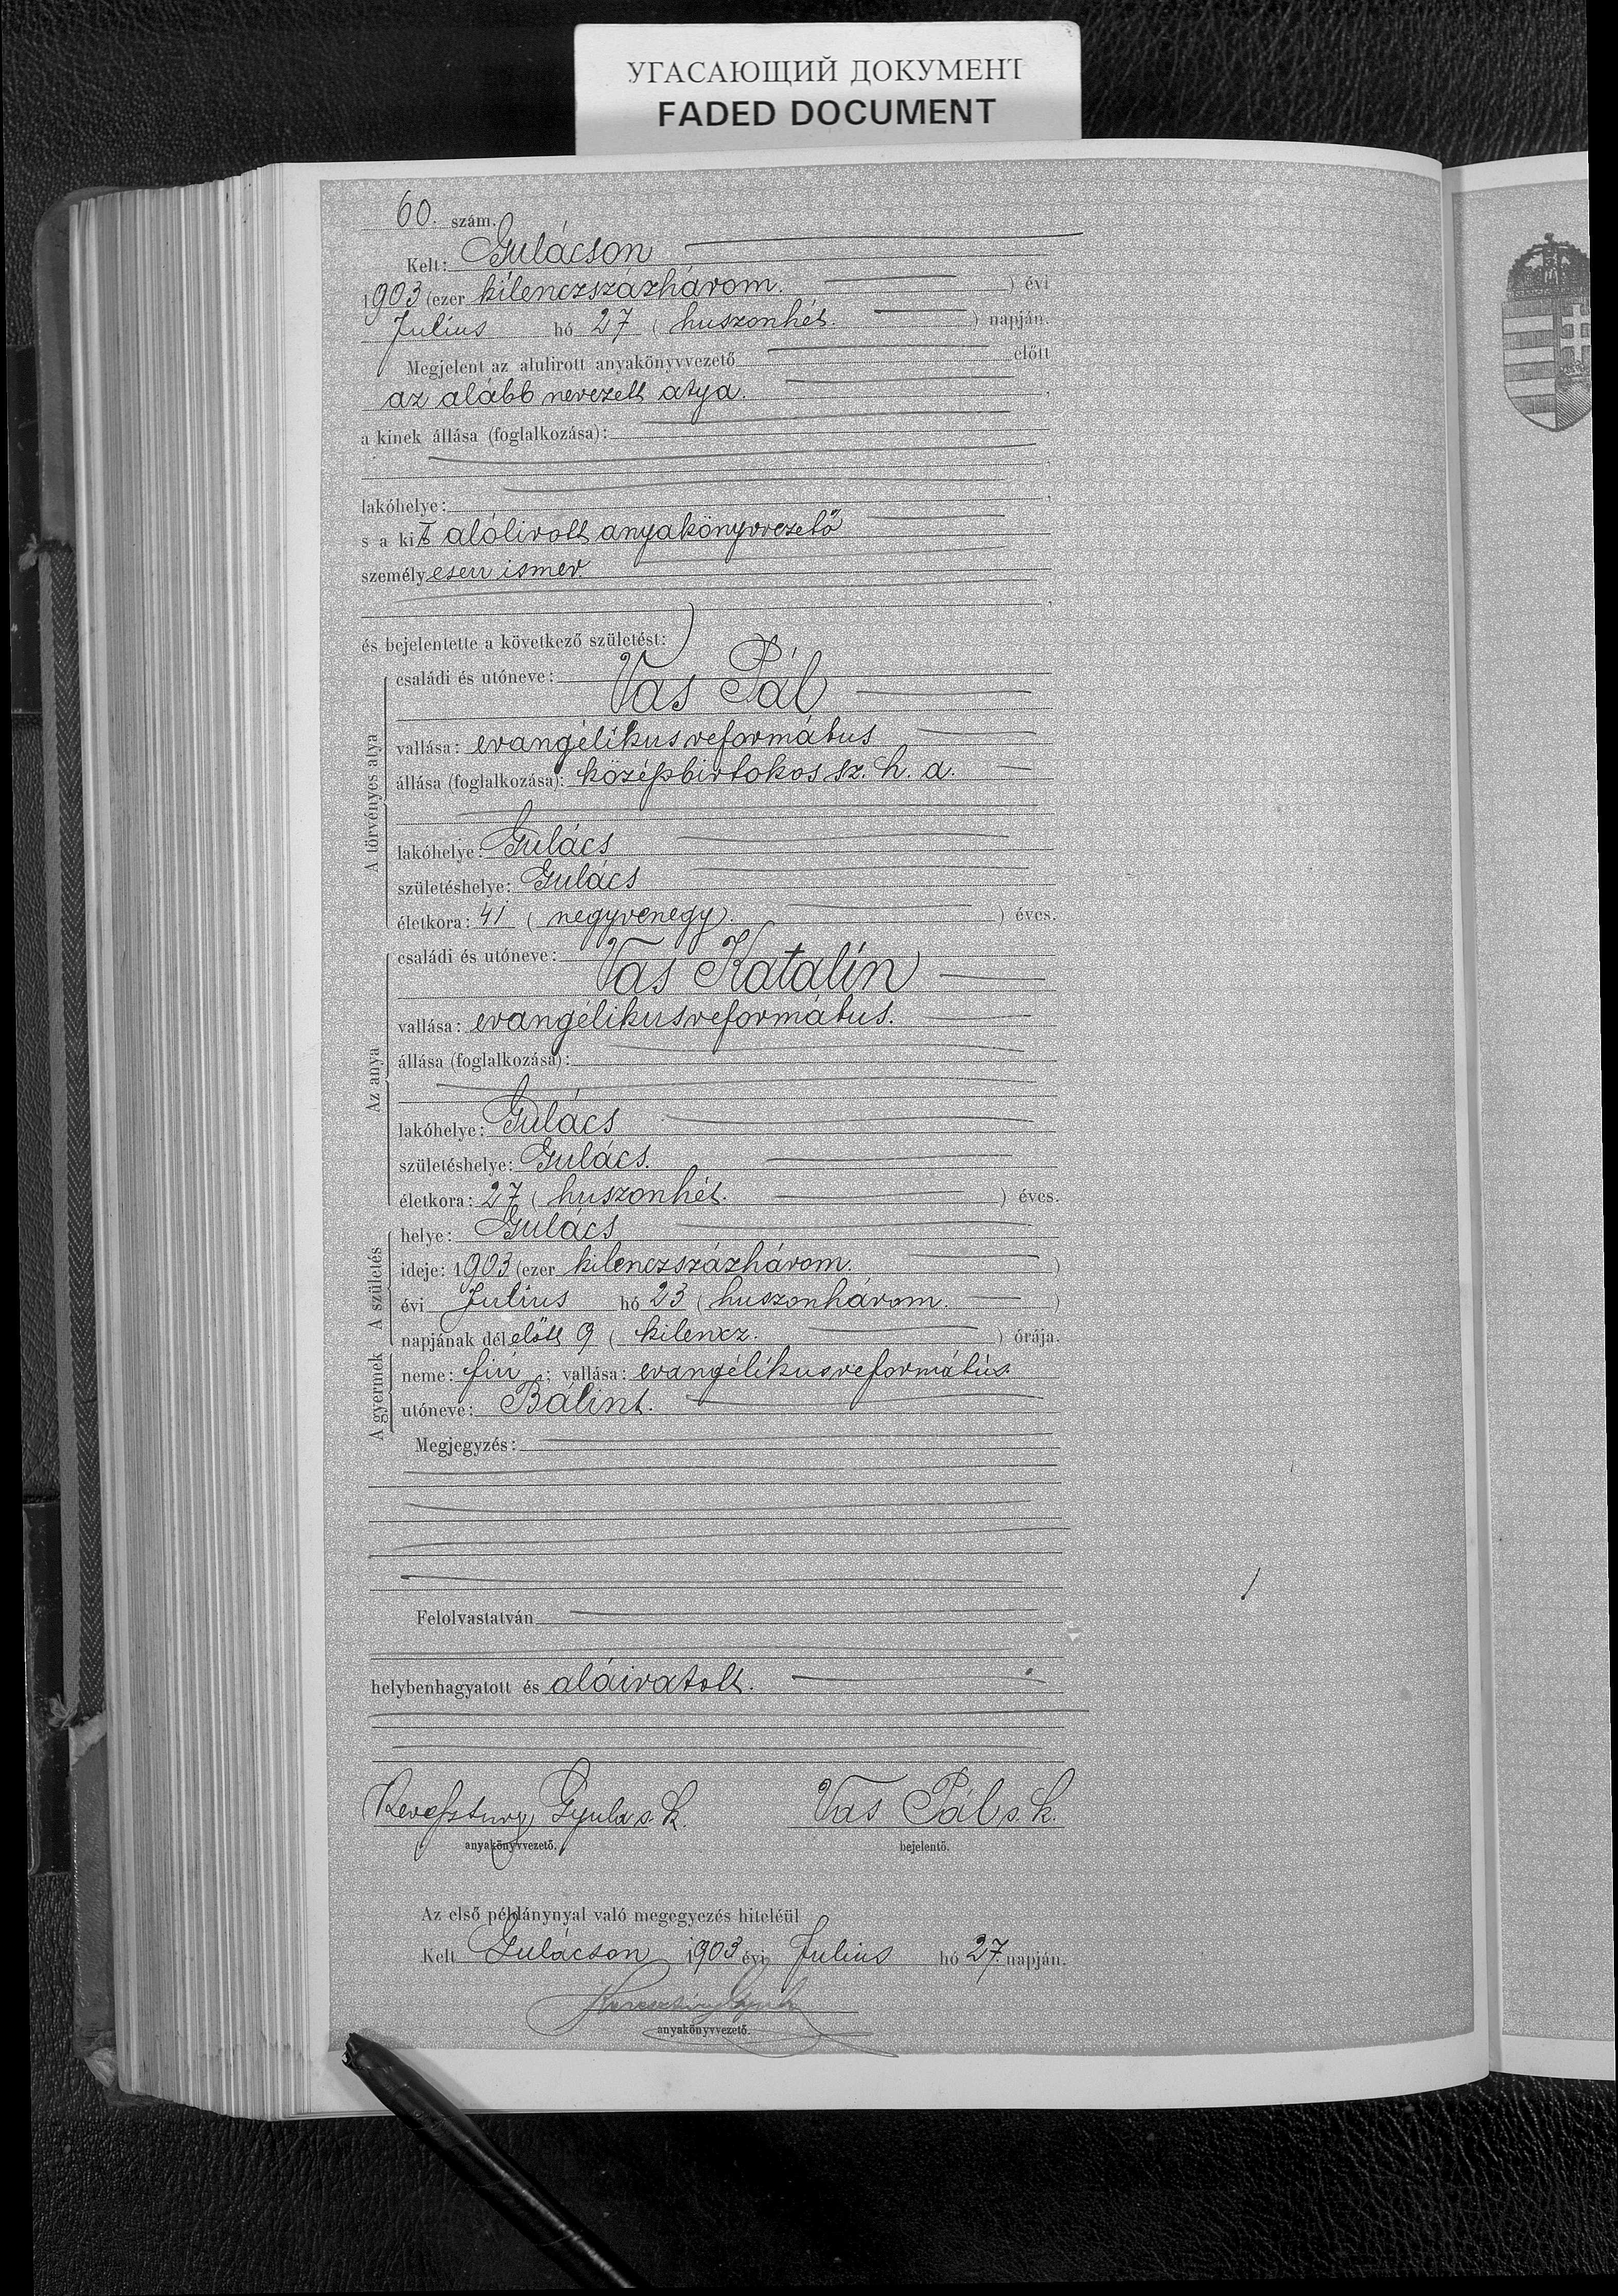 УГАСАЮЩИЙ ДОКУМЕНТ
FADED DOCUMENT
60. szám.
Kelt: Gulácson
1903 (ezer kilenczszázhárom. ) évi
Julius hó 27 ( huszonhét. ) napján.
Megjelent az alulirott anyakönyvvezető előtt
az alább nevezett atya. ,
a kinek állása (foglalkozása):
,
lakóhelye: ,
s a kit alólirott anyakönyvvezető
személyesen ismer.
,
és bejelentette a következő születést:
A törvényes atya
családi és utóneve:
Vas Pál
vallása: evangélikusreformátus
állása (foglalkozása): középbirtokos sz. h. a.
lakóhelye: Gulács
születéshelye: Gulács
életkora: 41 ( negyvenegy). ) éves.
Az anya
családi és utóneve:
Vas Katalin
vallása: evangélikusreformátus.
állása (foglalkozása):
lakóhelye: Gulács
születéshelye: Gulács.
életkora: 27 ( huszonhét. ) éves.
A születés
helye: Gulács
ideje: 1903 (ezer kilenczszázhárom. )
évi Julius hó 23 ( huszonhárom. )
napjának délelőtt 9 ( kilencz. ) órája.
A gyermek
neme: fiú ; vallása: evangélikusreformátus.
utóneve: Bálint.
Megjegyzés:
Felolvastatván
helybenhagyatott és aláiratott.
Gyula s. k. Vas Pál s. k.
anyakönyvvezető. bejelentő.
Az első példánynyal való megegyezés hiteléül
Kelt Gulácson 1903 évi Julius hó 27. napján.
anyakönyvvezető.